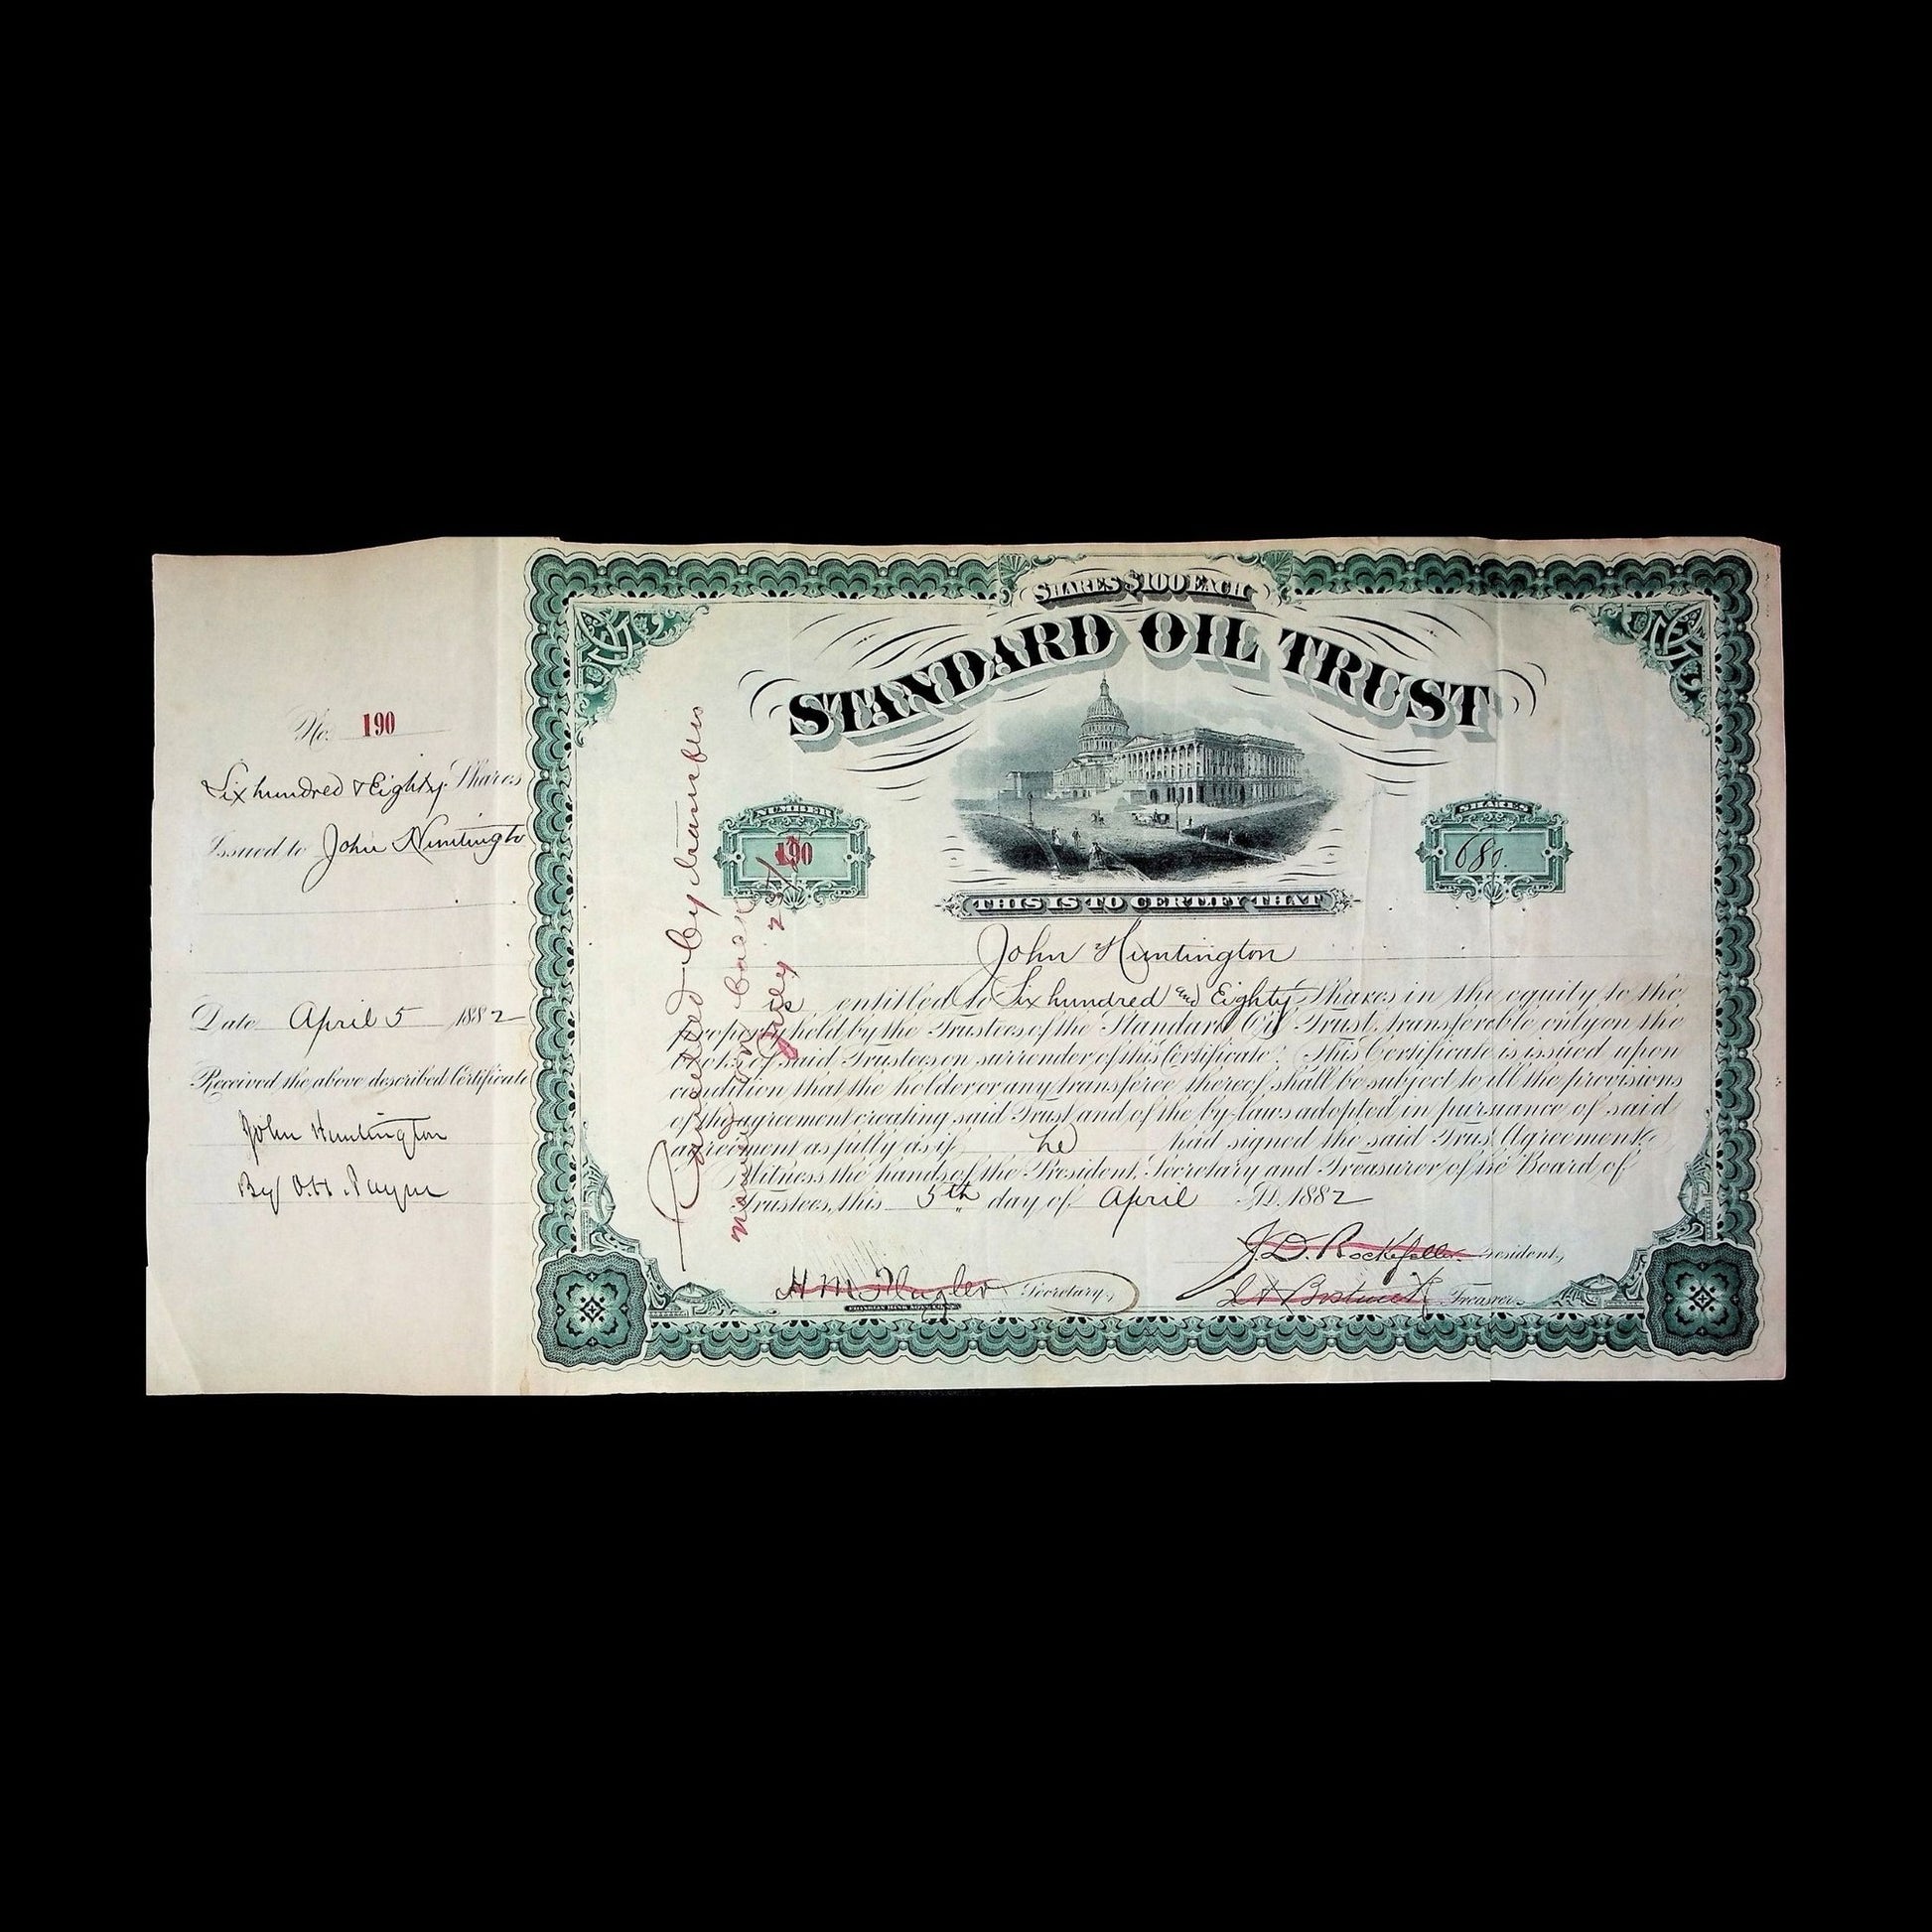 No. 190
Six hundred & Eighty Shares
Issued to John Huntington
Date April 5 1882
Received the above described Certificate
John Huntington
By O.H. Payne
SHARES $100 EACH
STANDARD OIL TRUST
NUMBER
190
SHARES
680.
THIS IS TO CERTIFY THAT
John Huntington
is entitled to Six hundred and Eighty Shares in the equity to the
property held by the Trustees of the Standard Oil Trust, transferable only on the
books of said Trustees on surrender of this Certificate. This Certificate is issued upon
condition that the holder or any transferee thereof shall be subject to all the provisions
of the agreement creating said Trust and of the by-laws adopted in pursuance of said
agreement as fully as if he had signed the said Trust Agreement.
Witness the hands of the President, Secretary and Treasurer of the Board of
Trustees, this 5th day of April A.D. 1882
J.D. Rockefeller President,
H M Flagler Secretary,
J A Bostwick Treasurer
Cancelled by transfer
July